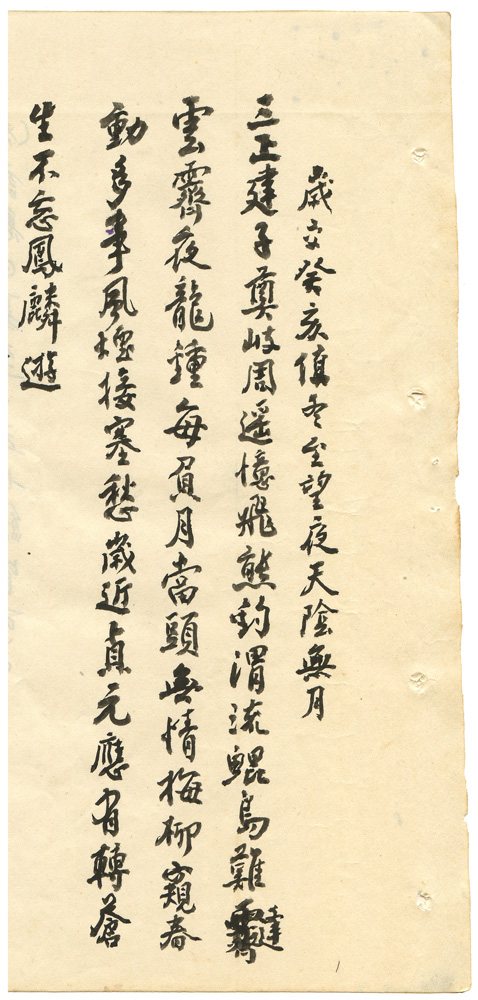 歲癸亥值冬至望夜天陰無月
三正建子奠岐周遥憶飛熊釣渭流鯤鳥難達
雲霽夜龍鍾每負月當頭無情梅柳窺春
動多事風煙接塞愁歲近貞元應有轉蒼
生不忘鳳麟遊